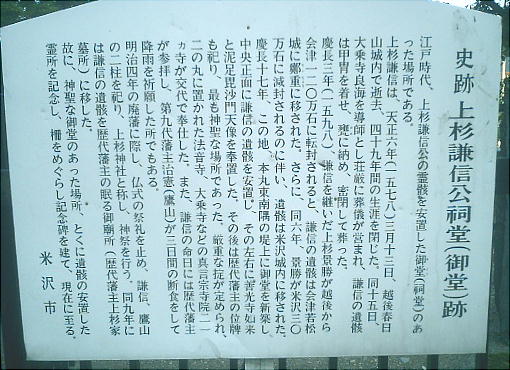 史跡 上杉謙信公祠堂(御堂)跡
江戸時代、上杉謙信公の霊骸を安置した御堂(祠堂)のあ
った場所である。
上杉謙信は、天正六年(一五七八)三月十三日、越後春日
山城内で逝去、四十九年間の生涯を閉じた。同十五日、
大乗寺良海を導師とし荘厳に葬儀が営まれ、謙信の遺骸
は甲冑を着せ、甕に納め、密閉して葬った。
慶長三年(一五九八)、謙信を継いだ上杉景勝が越後から
会津一二〇万石に転封されると、謙信の遺骸は会津若松
城に鄭重に移された。さらに、同六年、景勝が米沢三〇
万石に減封されるのに伴い、遺骸は米沢城内に移された。
慶長十七年、この地、本丸東南隅の堤上に御堂を新築し、
中央正面に謙信の遺骸を安置し、その左右に善光寺如来
と泥足毘沙門天像を奉置した。その後は歴代藩主の位牌
も祀り、最も神聖な場所であった。厳重な掟が定められ、
二の九に置かれた法音寺、大乗寺などの真言宗寺院二一
ヵ寺が交代で奉仕した。また、謙信の命日には歴代藩主
が参拝し、第九代藩主治憲(鷹山)が三日間の断食をして
降雨を祈願した所でもある。
明治四年の廃藩に際し、仏式の祭礼を止め、謙信、鷹山
の二柱を祀り、上杉神社と称し、神祭を行う。同九年に
は謙信の遺骸を歴代藩主の眠る御廟所(歴代藩主上杉家
墓所)に移した。
故に、神聖な御堂のあった場所、とくに遺骸の安置した
霊所を記念し、柵をめぐらし記念碑を建て、現在に至る。
米沢市